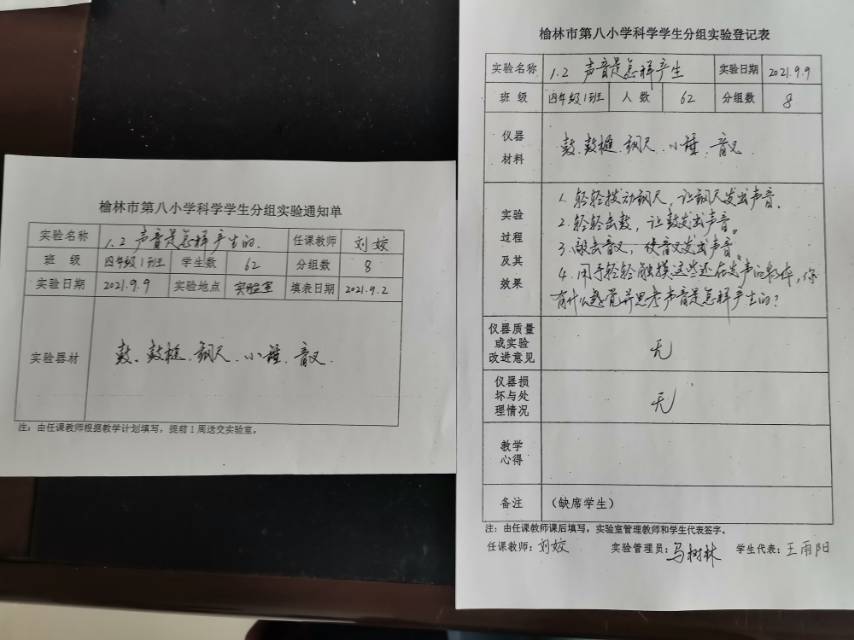 榆林市第八小学科学学生分组实验通知单
实验名称 1.2 声音是怎样产生的. 任课教师 刘姣
班 级 四年级1班 学生数 62 分组数 8
实验日期 2021.9.9 实验地点 实验室 填表日期 2021.9.2
实验器材 鼓、鼓槌、钢尺、小锤、音叉.
注：由任课教师根据教学计划填写，提前1周送交实验室。
榆林市第八小学科学学生分组实验登记表
实验名称 1.2 声音是怎样产生 实验日期 2021.9.9
班 级 四年级1班 人 数 62 分组数 8
仪器
材料
鼓、鼓槌、钢尺、小锤、音叉
实验
过程
及其
效果
1. 轻轻拨动钢尺，让钢尺发出声音.
2. 轻轻击鼓，让鼓发出声音。
3. 敲击音叉，使音叉发出声音。
4. 用手轻轻触摸这些还在发声的物体，你
有什么感觉并思考声音是怎样产生的？
仪器质量
或实验
改进意见
无
仪器损
坏与处
理情况
无
教学
心得
备注 （缺席学生）
注：由任课教师课后填写，实验室管理教师和学生代表签字。
任课教师：刘姣 实验管理员：马树林 学生代表：王雨阳